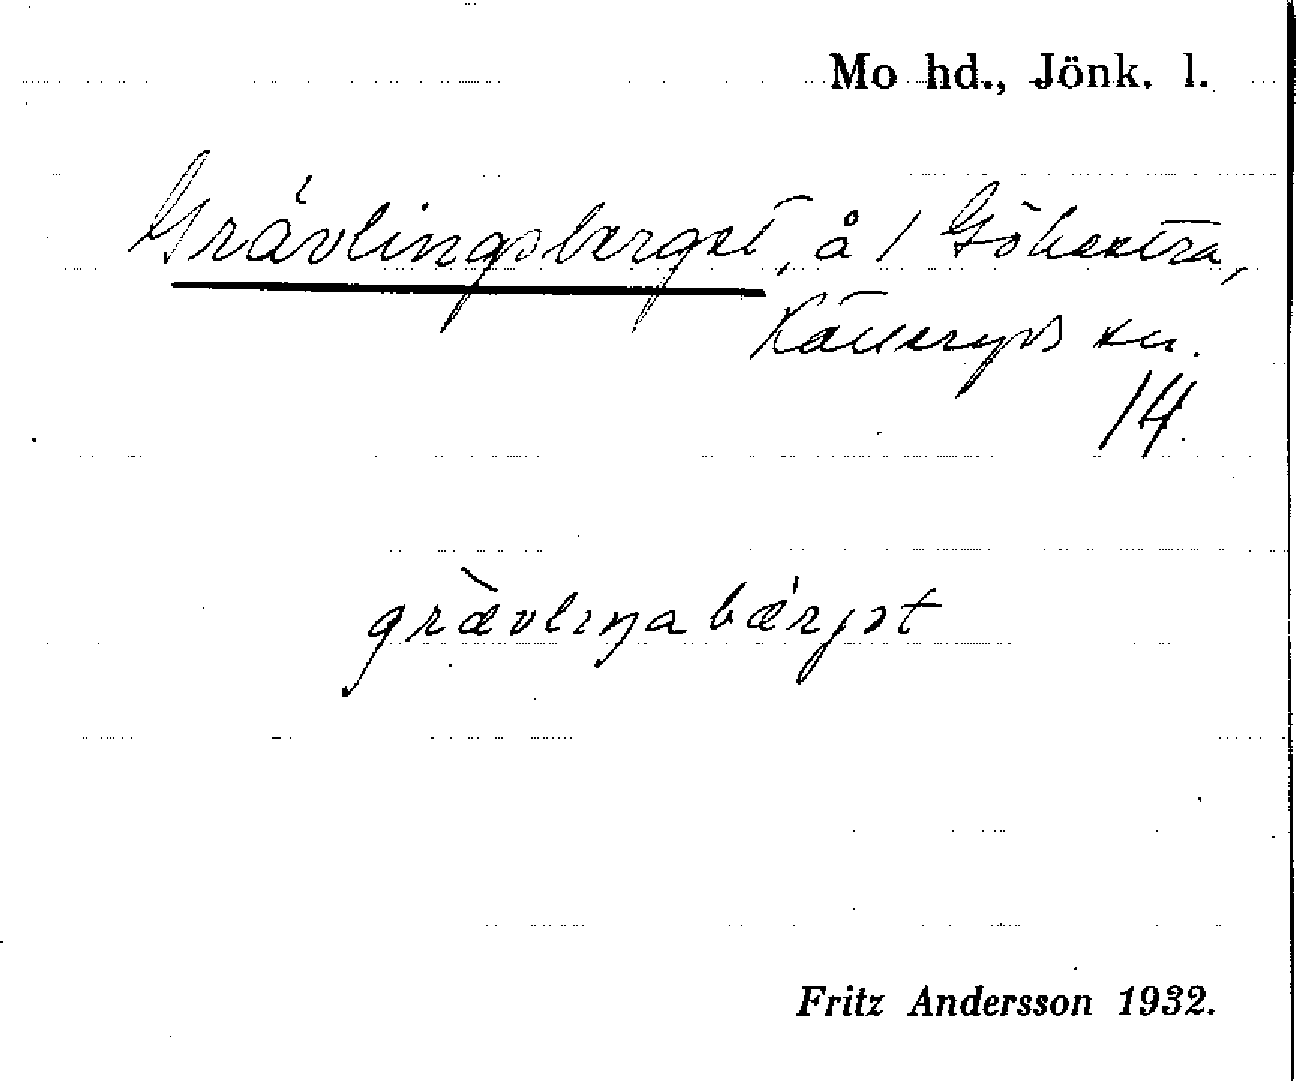 Mo hd., Jönk. l.
Grävlingsberget, å 1 Göhestra,
Källeryds sn.
14.
grævlıŋabærjət
Fritz Andersson 1932.